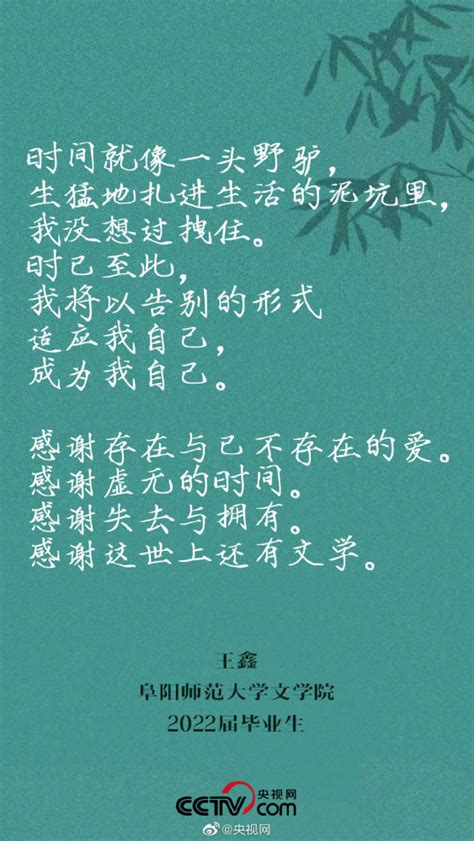 时间就像一头野驴，
生猛地扎进生活的泥坑里，
我没想过拽住。
时已至此，
我将以告别的形式
适应我自己，
成为我自己。
感谢存在与已不存在的爱。
感谢虚无的时间。
感谢失去与拥有。
感谢这世上还有文学。
王鑫
阜阳师范大学文学院
2022届毕业生
CCTV 央视网 com
@央视网